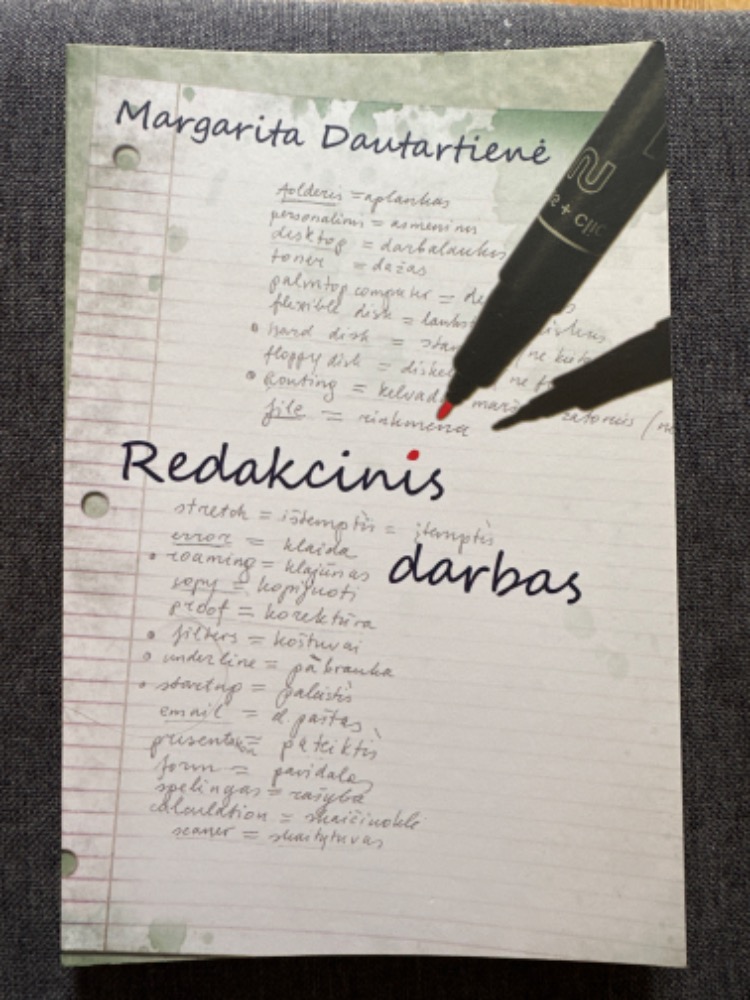 Margarita Dautartienė
folderis = aplankas
personalinis = asmeninis
desktop = darbalaukis
toner = dažas
palmtop computer = de
flexible disk = lankst
hard disk = stan ne kieta
floppy disk = diskel ne f
Routing = kelvada marš zatorius
file = rinkmena
Redakcinis
stretch = ištemptis = įtemptis
error = klaida
roaming = klajūnas
copy = kopijuoti
darbas
proof = korektūra
filters = koštuvai
underline = pabrauka
startup = paleistis
email = el. paštas
pateiktis
form = pavidalas
spelingas = rašyba
calculation = skaičiuoklė
scaner = skaitytuvas